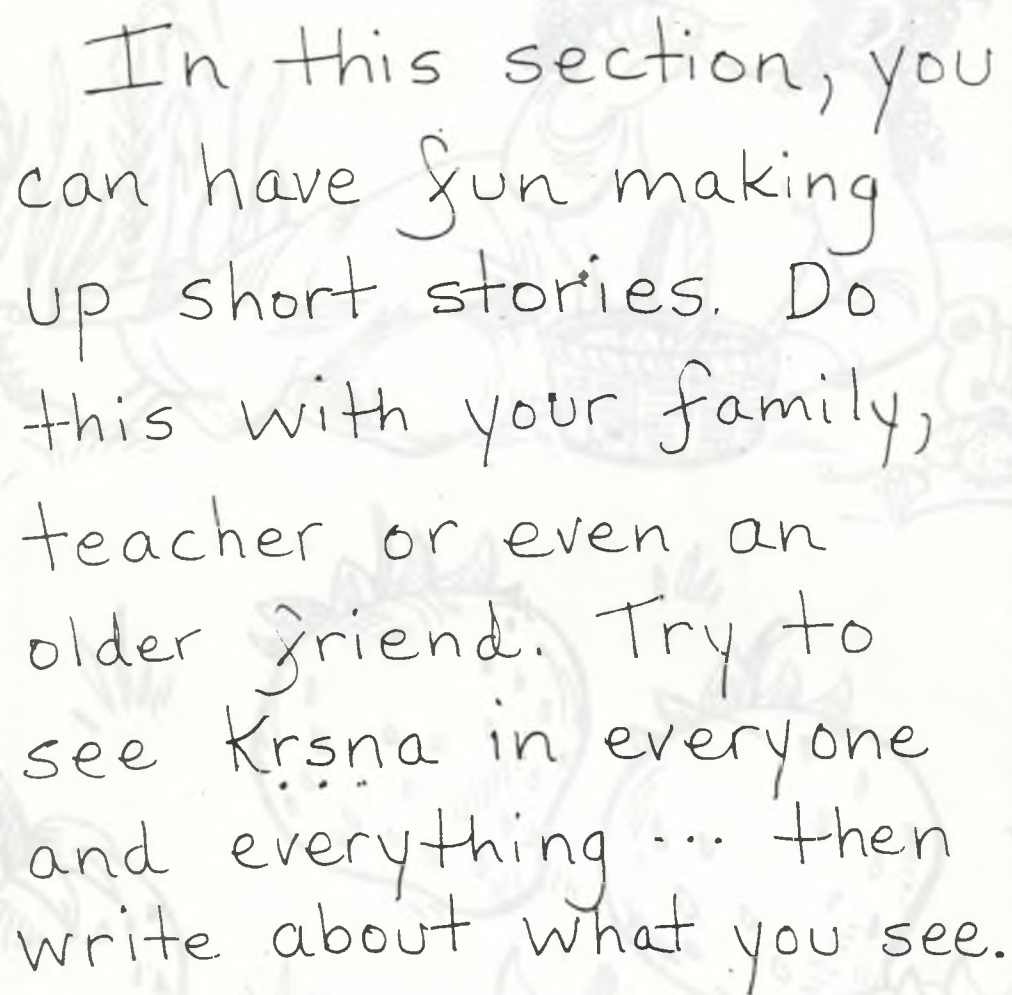 In this section, you
can have fun making
up short stories. Do
this with your family,
teacher or even an
older friend. Try to
see Kṛṣṇa in everyone
and everything ... then
write about what you see.